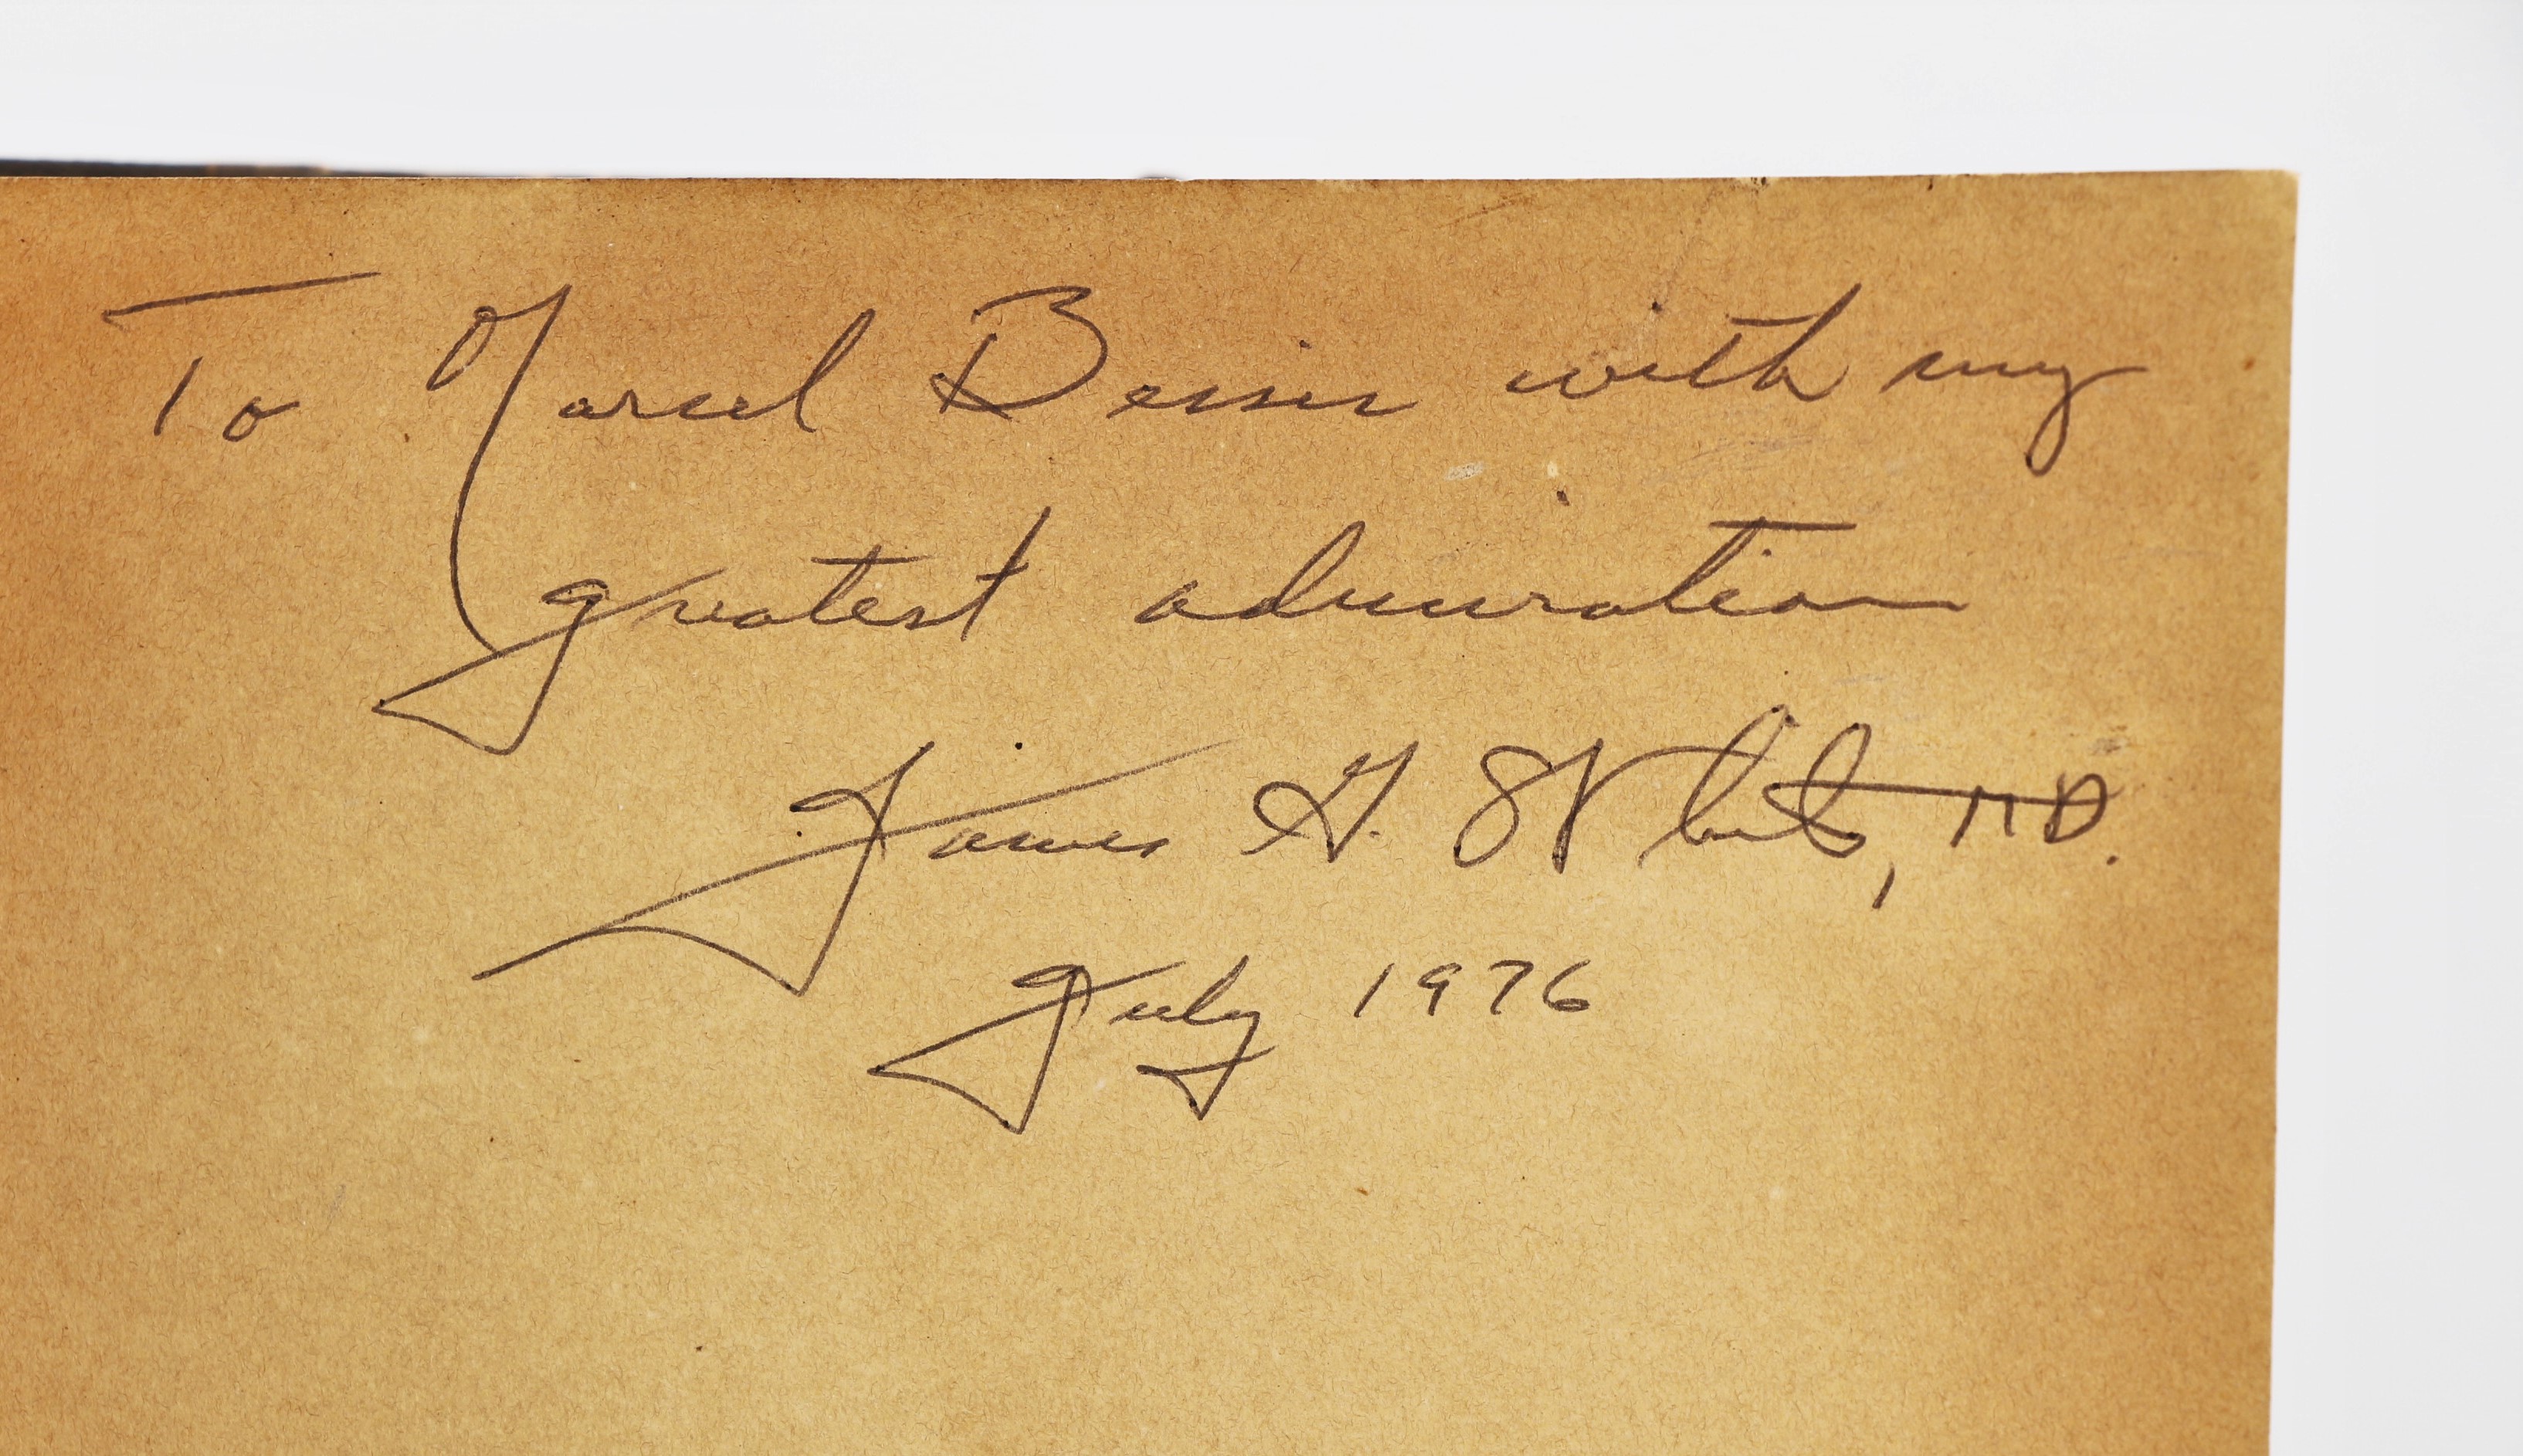 To Marcel Bessis with my
greatest admiration
James G. White, M.D.
July 1976